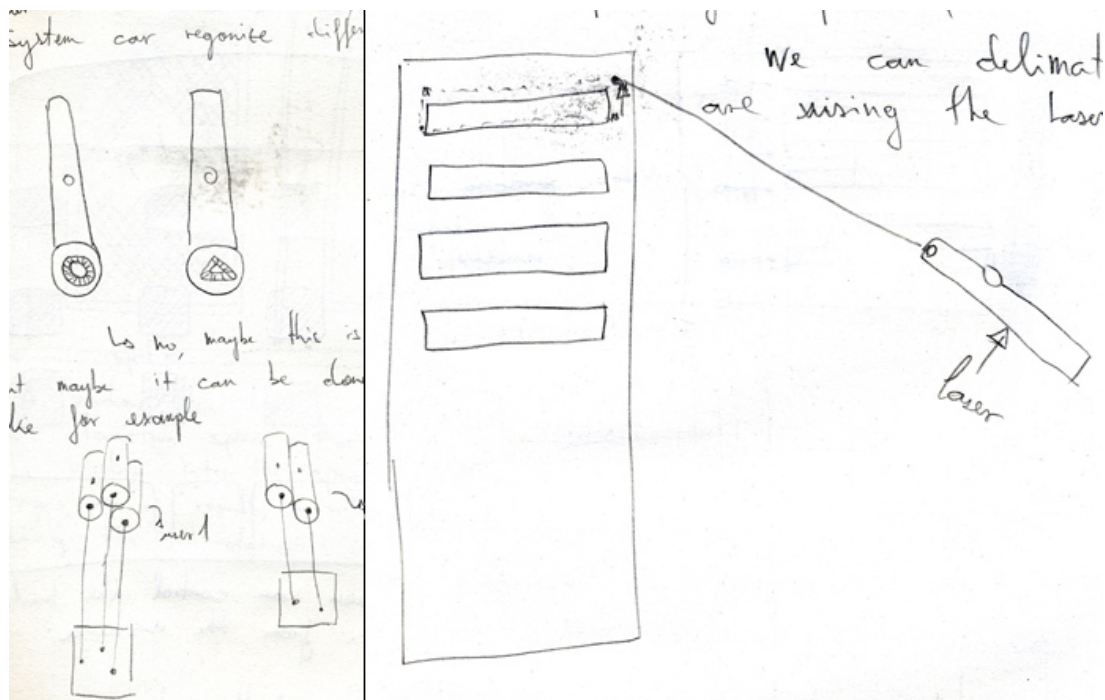 system car regonize differ
Ls no, maybe this is
nt maybe it can be don
ke for example
user 1
We can delimat
are using the laser
laser